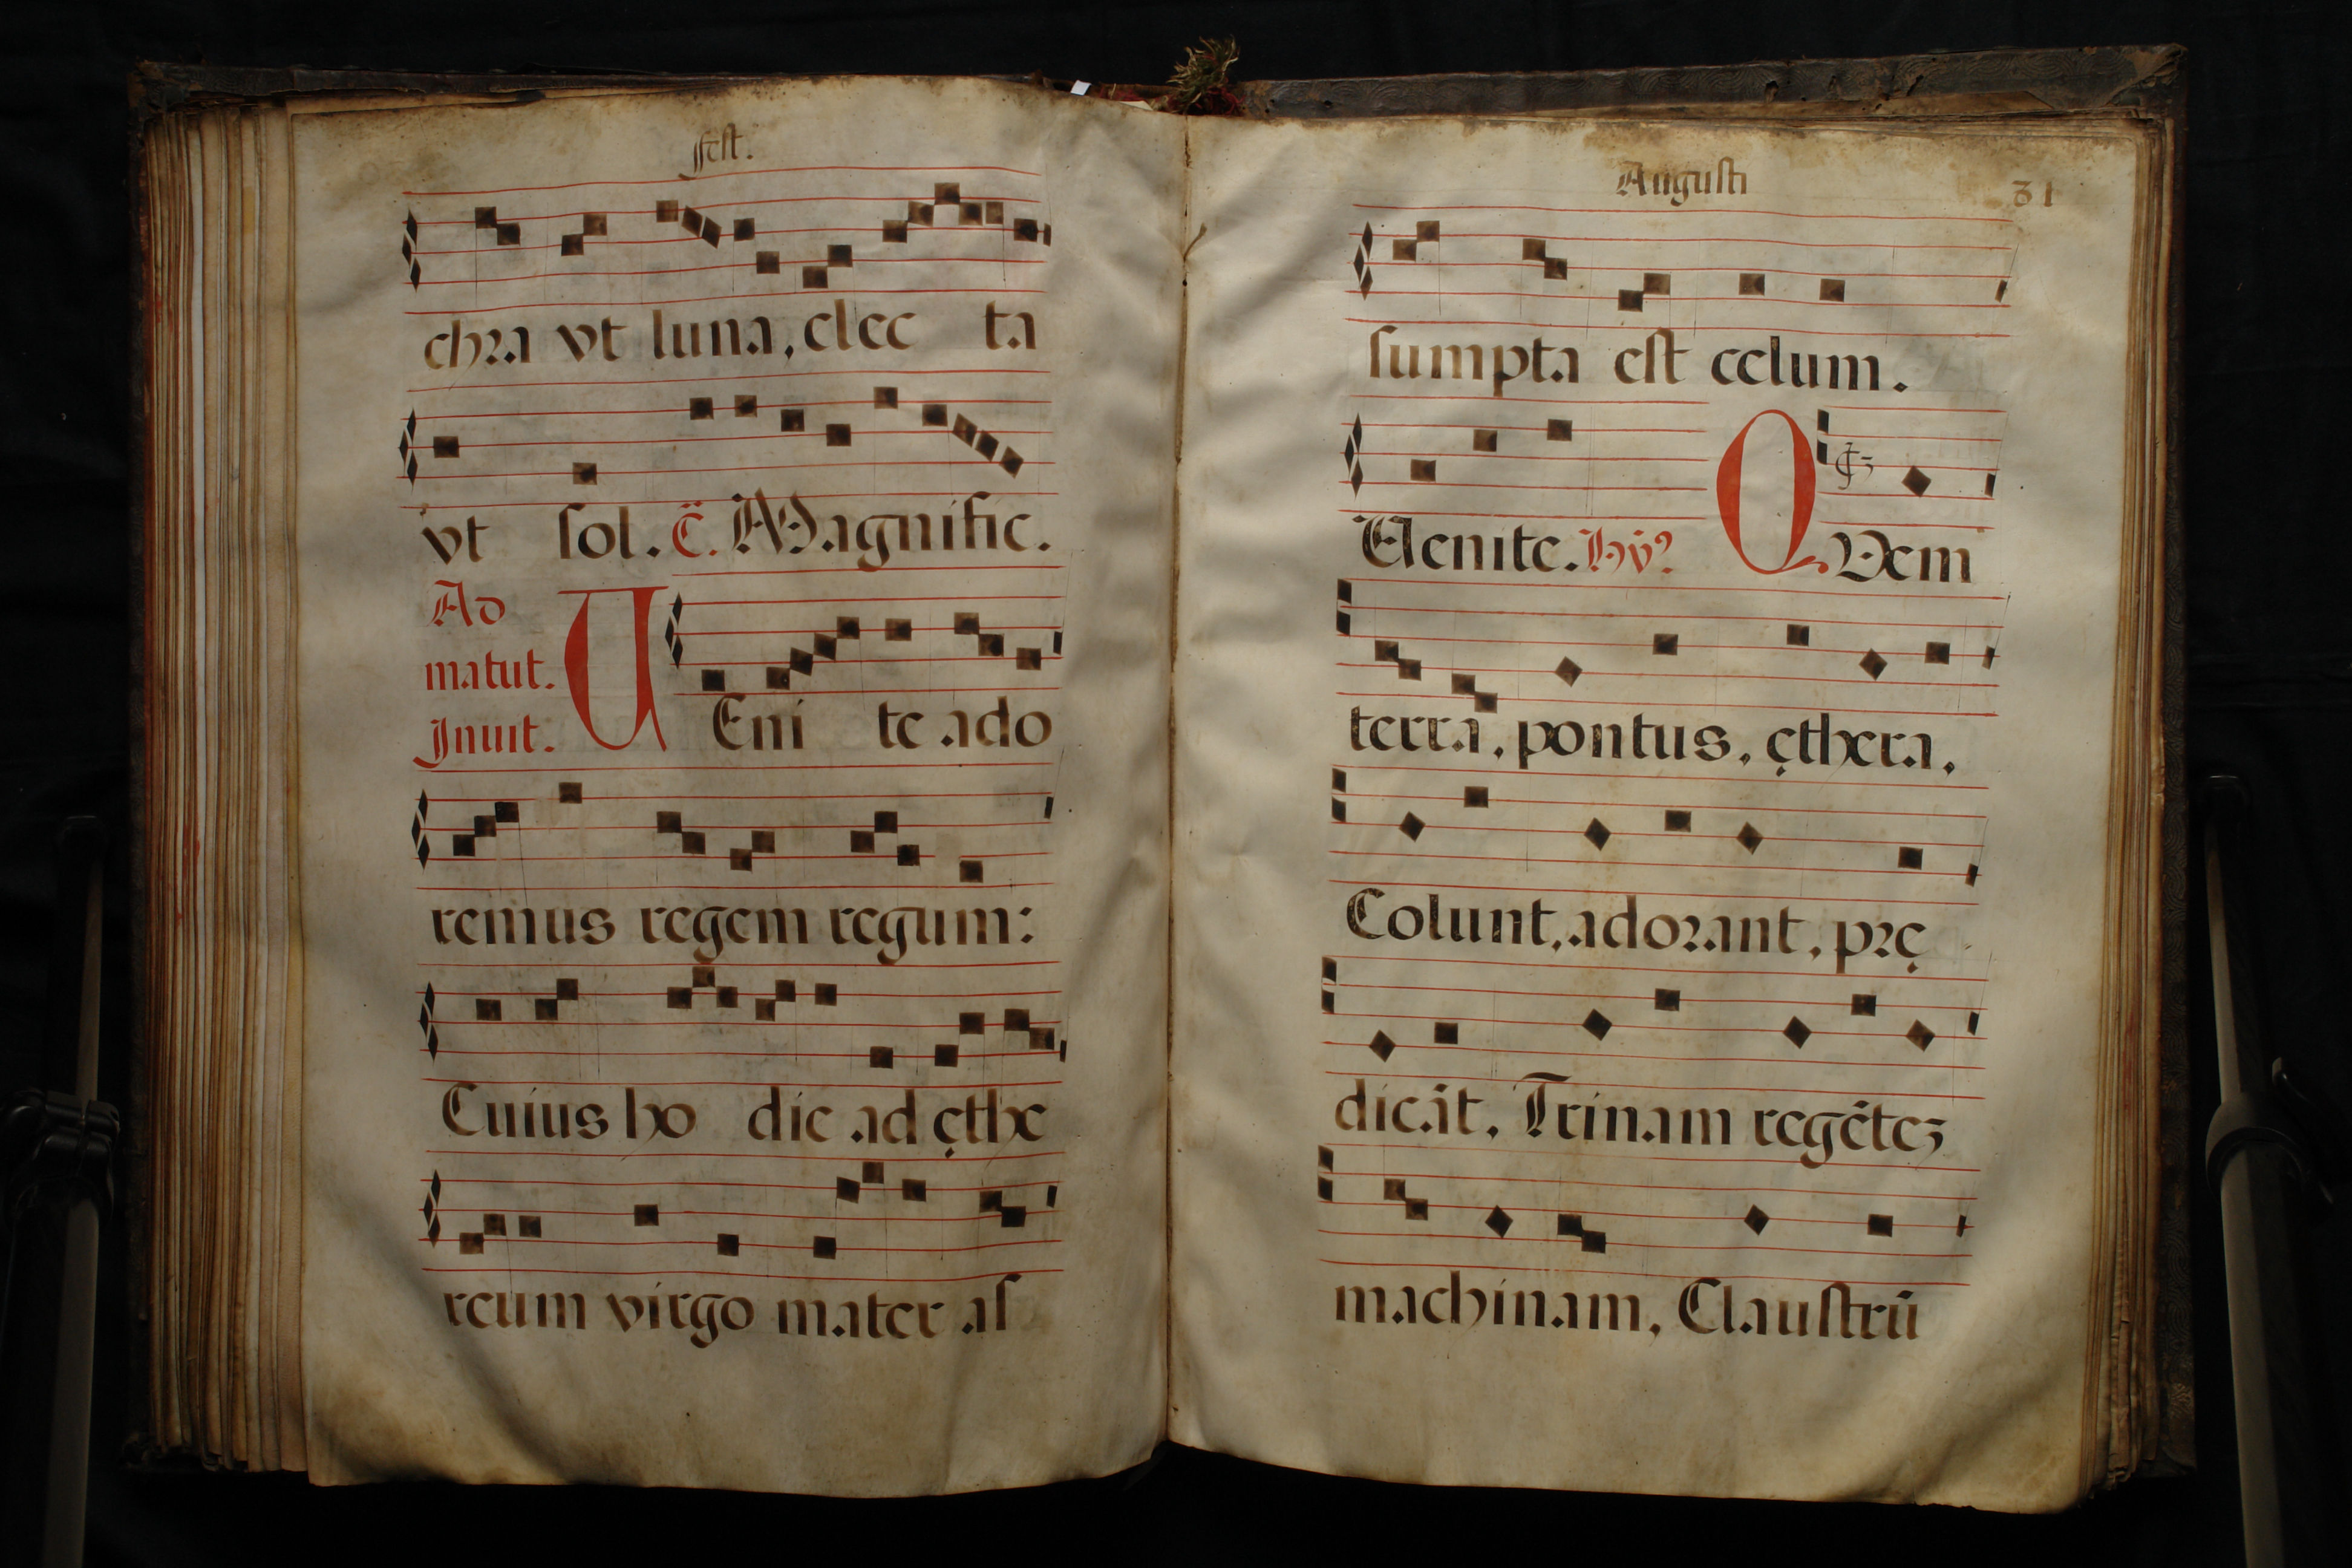 fest.
chra vt luna, elec ta
vt sol. C̄. Magnific.
Ad
matut.
Inuit.
VEni te ado
remus regem regum:
Cuius ho die ad ęthe
reum virgo mater as
Augusti
31
sumpta est celum.
Uenite. Hỹ? QUem
terra, pontus, ęthera,
Colunt, adorant, prę
dicāt, Trinam regētez
machinam, Claustrū